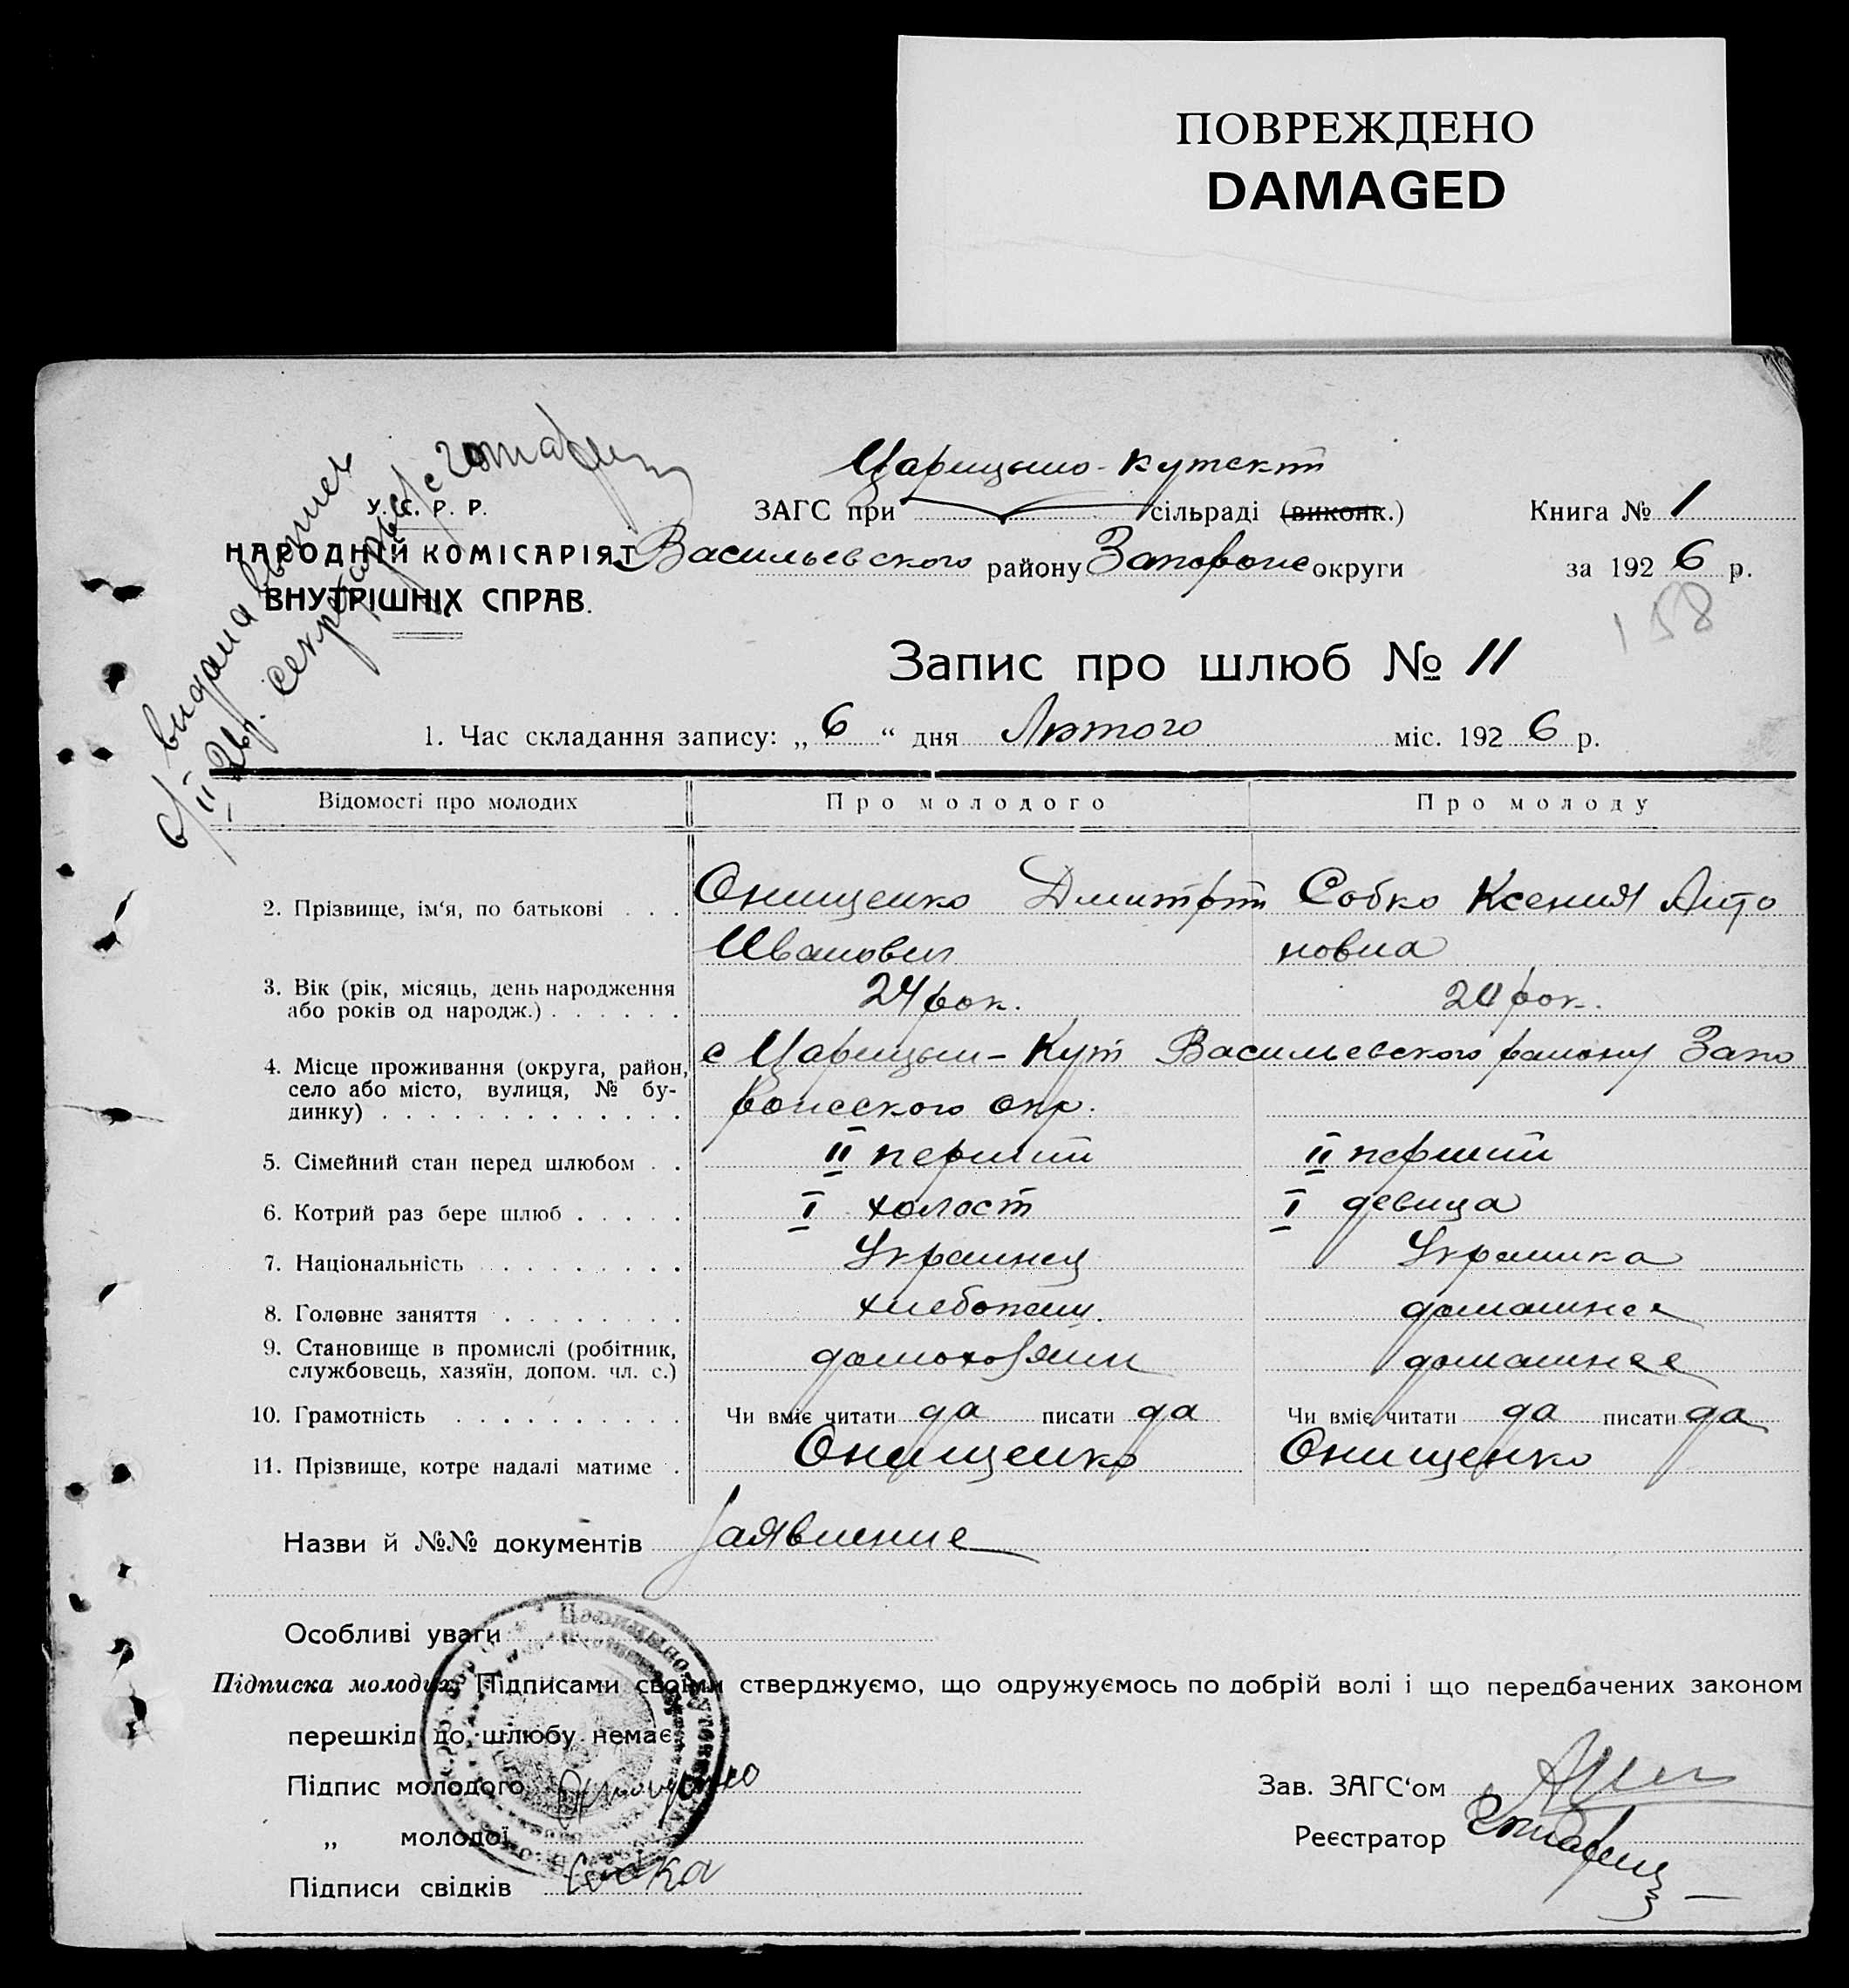 ПОВРЕЖДЕНО
DAMAGED
Царицыно-Кутскій
У. С. Р. Р.
ЗАГС при сільраді (виконк.) Книга № 1
НАРОДНІЙ КОМІСАРІЯТ
Васильевского району Запорож округи за 1926 р.
ВНУТРІШНІХ СПРАВ.
158
Запис про шлюб № 11
1. Час складання запису: „6“ дня Лютого міс. 1926 р.
видана
секретарь
Відомості про молодих Про молодого Про молоду
2. Прізвище, ім‘я, по батькові . . . Онищенко Дмитрій Собко Ксения Анто
Иванович новна
3. Вік (рік, місяць, день народження
або років од народж.) . . . . . . 24 рок. 20 рок.
4. Місце проживання (округа, район, с Царицын-Кут Васильевского району Запо
село або місто, вулиця, № бу-
динку) . . . . . . . . . . . . . рожского окр.
5. Сімейний стан перед шлюбом . . II перший II перший
6. Котрий раз бере шлюб . . . . . I холост I девица
7. Національність . . . . . . . . . Украинец Украинка
8. Головне заняття . . . . . . . . хлебопаш. домашнее
9. Становище в промислі (робітник,
службовець, хазяїн, допом. чл. с.) домохозяин домашнее
10. Грамотність . . . . . . . . . . Чи вміє читати да писати да Чи вміє читати да писати да
11. Прізвище, котре надалі матиме . Онищенко Онищенко
Назви й №№ документів Заявление
Особливі уваги
Підписка молодих. Підписами своїми стверджуємо, що одружуємось по добрій волі і що передбачених законом
перешкід до шлюбу немає
Підпис молодого Зав. ЗАГС‘ом
„ молодої Реєстратор
Підписи свідків